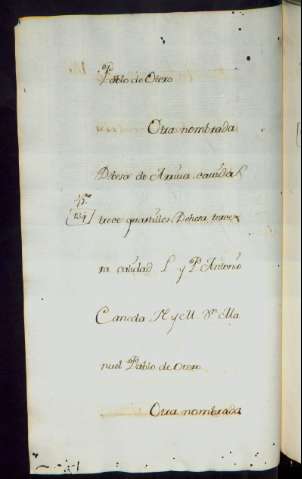 Pablo de Otero
Otra nombrada
Debesa de Arriua
trece quartillos Dehesa terce
ra calidad L y P. Antonio
Caneda N y M Dn. Ma
nuel Pablo de Otero
Otra nombrada